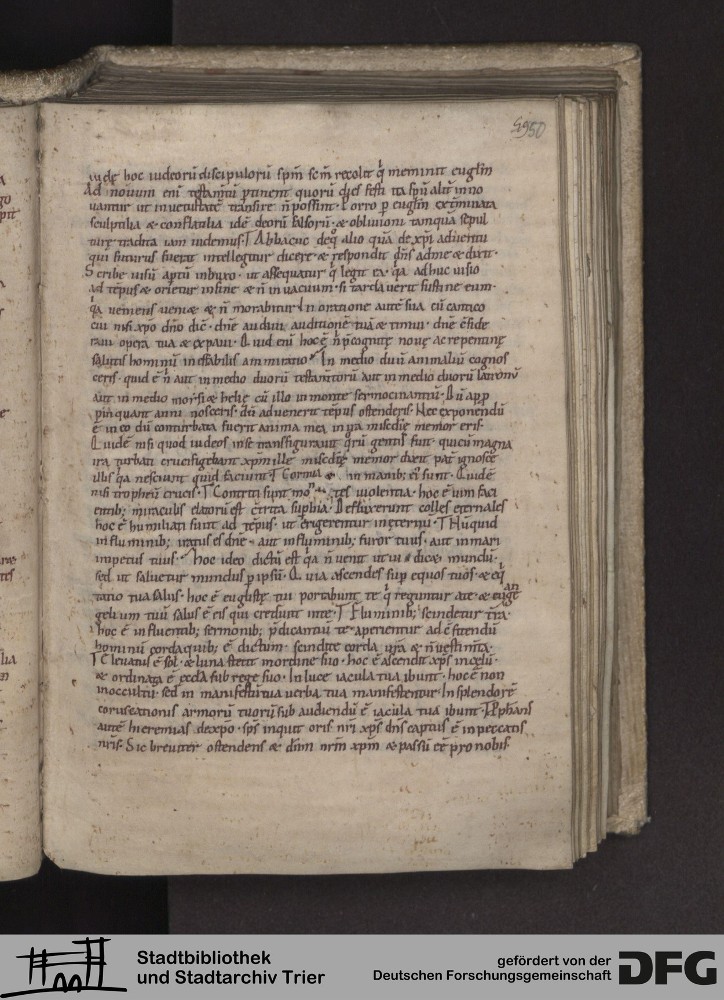 5950
iudę hoc iudeorū discipulorū spm̄ scm̄ recolit q̇ meminit euglm̄
Ad nouum eni testamtū ptinent quorū dies festi ita spū alit in no
uantur ut in uetustatē transire n̄ possint. Porro p euglm̄ extminata
sculptilia & conflatilia idē deorū falsorū. & obliuioni tanquā sepul
turę tradita iam uidemus. Abbacuc de quo alio quā de xpi aduentu
qui futurus fuerat intellegitur dicere & respondit dn̄s ad me & dixit.
Scribe uisū aptū in buxo. ut assequatur q̇ legit ea. q̄a adhuc uisio
ad tēpus & orietur in fine & n̄ in uacuum. si tardauerit sustine eum.
q̄a ueniens ueniæ & n̄ morabitur. In oratione autē sua cū cantico
cui nisi xpo dn̄o dic̄. dn̄e audiui auditionē tuā & timui. dn̄e c̄side
raui opera tua & expaui. Quid enī hoc ē n̄ pcognitę nouę ac repentinę
salutis hominū ineffabilis ammiratio. In medio duū animaliū cognos
ceris. quid ē n̄ aut in medio duorū testam̄torū aut in medio duorū latronū
aut in medio moysi & helię cū illo in monte sermocinantiū. Dū app
pinquant anni nosceris. dū aduenerit tēpus ostenderis. Nec exponendū
ē in eo dū conturbata fuerit anima mea in ira misc̄dię memor eris.
Quid ē nisi quod iudeos in se transfigurauit q̄rū gentis fuit. qui cū magna
ira turbati crucifigebant xpm̄ ille misc̄dię memor dixit pat̄ ignosce
illis q̄a nesciunt quid faciunt. Cornua in manib; ei sunt. Quid ē
nisi tropheū crucis. Contriti sunt tes uiolentia. hoc ē uim faci
entib; miraculis elatorū est c̄trita supbia. Defluxerunt colles eternales
hoc ē humiliati sunt ad tēpus. ut erigerentur in eternū. Nūquid
in fluminib; iratus es dn̄e. aut in fluminib; furor tuus. aut in mari
impetus tuus. Hoc ideo dictū est q̄a n̄ uenit ut iudicæ mundū.
sed ut saluetur mundus p ipsū. Quia ascendes sup equos tuos. & eq̇
tatio tua salus. hoc ē euglistę tui portabunt te q̇ reguntur a te. & euan
gelium tuū salus ē eis qui credunt in te. Fluminib; scindetur tr̄ra
hoc ē influentib; sermonib; pdicantiū te. aperientur ad c̄fitendū
hominū corda quib; ē dictum. scindite corda ur̄a & n̄ uestimta.
Eleuatus ē sol. & luna stetit in ordine suo. hoc ē ascendit xps in celū.
& ordinata ē eccla sub rege suo. In luce iacula tua ibunt. hoc ē non
in occultū. sed in manifestū tua uerba tua manifestentur. In splendorē
coruscationis armorū tuorū sub audiendū ē iacula tua ibunt. Pphans
autē hieremias de xpo. sps inquit oris nr̄i xps dn̄s captus ē in peccatis
nr̄is. Sic breuiter ostendens & dn̄m nr̄m xpm̄ & passū eē pro nobis.
Stadtbibliothek
und Stadtarchiv Trier
gefördert von der
Deutschen Forschungsgemeinschaft
DFG